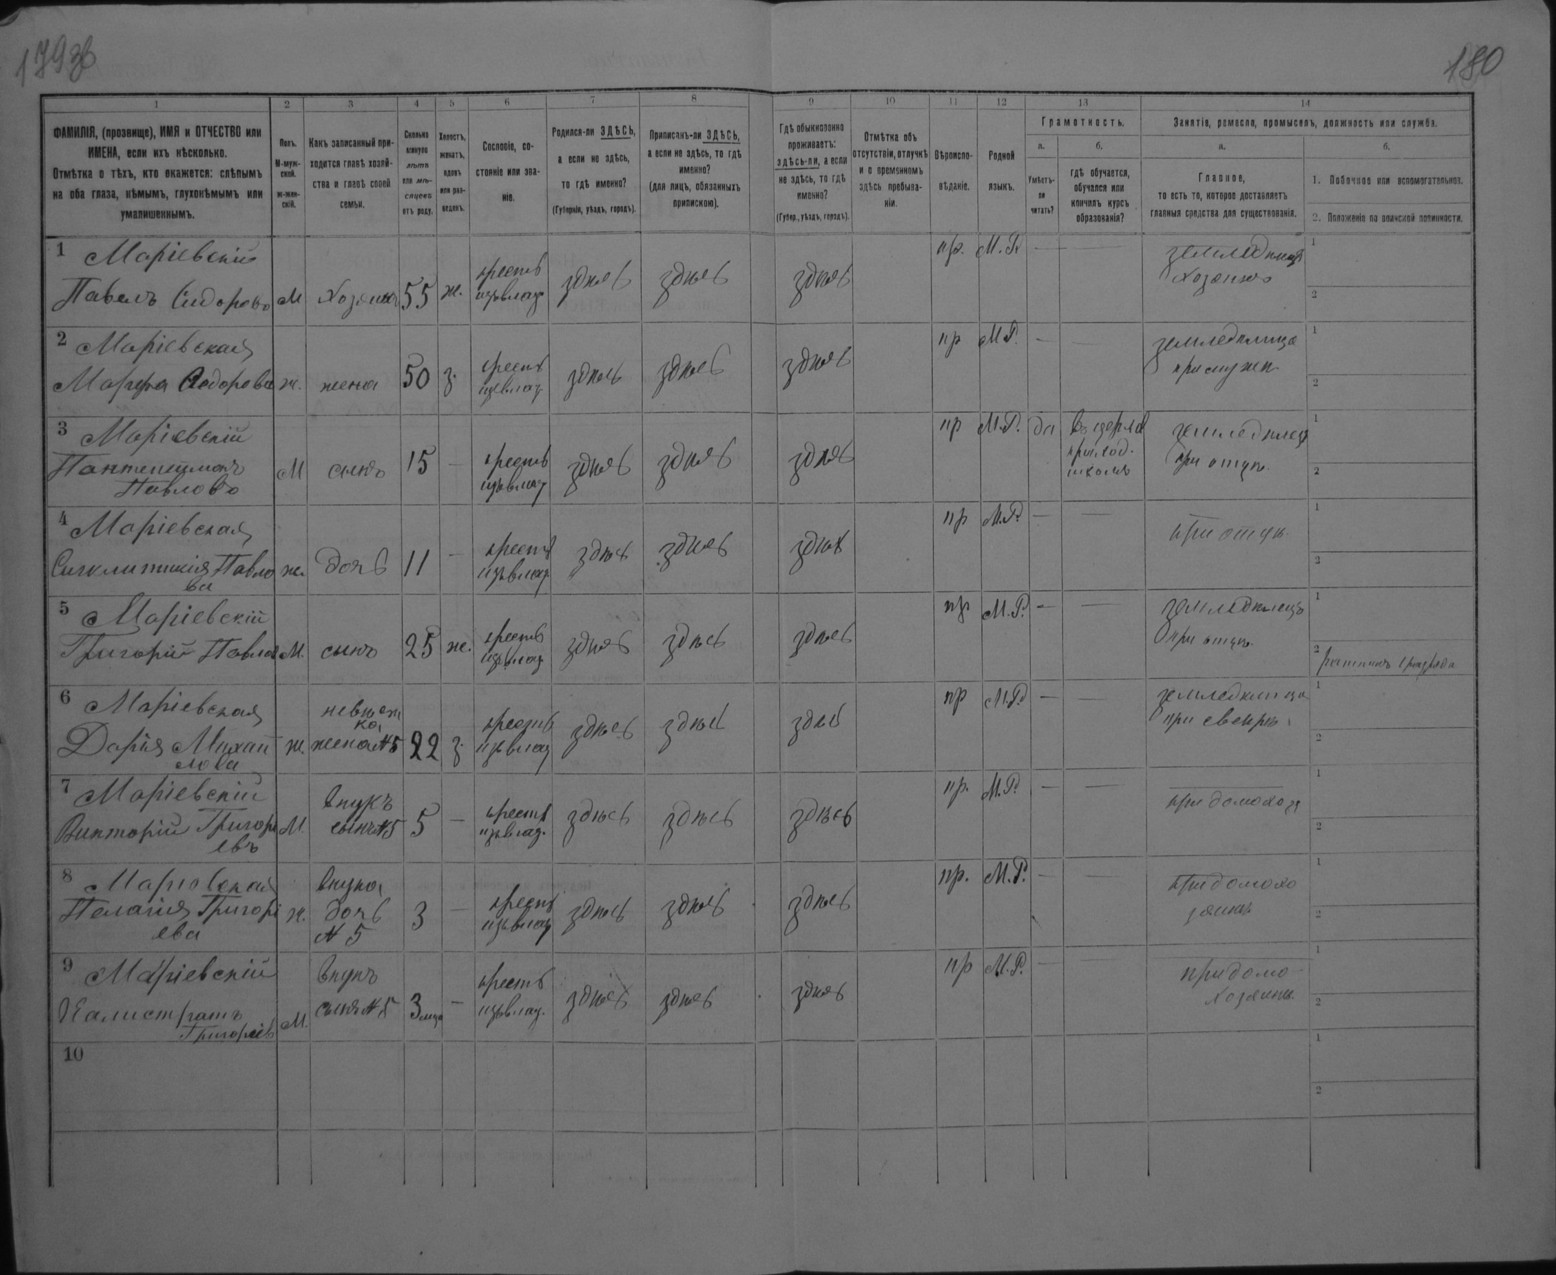 179об
180
1
2
3
4
5
6
7
8
9
10
11
12
13
14
ФАМИЛІЯ, (прозвище), ИМЯ и ОТЧЕСТВО или
ИМЕНА, если ихъ нѣсколько.
Отмѣтка о тѣхъ, кто окажется: слѣпымъ
на оба глаза, нѣмымъ, глухонѣмымъ или
умалишеннымъ.
Полъ.
М-мужской.
ж-женскій.
Какъ записанный приходится главѣ хозяйства и главѣ своей
семьи.
Сколько
минуло
лѣтъ
или мѣсяцевъ
отъ роду.
Холостъ,
женатъ,
вдовъ
или разведенъ.
Сословіе, состояніе или званіе.
Родился-ли ЗДѢСЬ,
а если не здѣсь,
то гдѣ именно?
(Губернія, уѣздъ, городъ).
Приписанъ-ли ЗДѢСЬ,
а если не здѣсь, то гдѣ
именно?
(для лицъ, обязанныхъ
припискою).
Гдѣ обыкновенно
проживаетъ:
здѣсь-ли, а если
не здѣсь, то гдѣ
именно?
(Губер., уѣздъ, городъ).
Отмѣтка объ
отсутствіи, отлучкѣ
и о временномъ
здѣсь пребываніи.
Вѣроисповѣданіе.
Родной
языкъ.
Грамотность.
а.
Умѣетъ-ли
читать?
б.
гдѣ обучается,
обучался или
кончилъ курсъ
образованія?
Занятіе, ремесло, промыселъ, должность или служба.
а.
Главное,
то есть то, которое доставляетъ
главныя средства для существованія.
б.
1. Побочное или вспомогательное.
2. Положеніе по воинской повинности.
1 Маріевскій
Павелъ Сидоровъ М хозяинъ 55 ж. крестьян изъ влад. здѣсь здѣсь здѣсь пр. М.Р. — — земледѣлецъ
хозяинъ
1
2
2 Маріевская
Марфа ж. жена 50 з. крестьян изъ влад. здѣсь здѣсь здѣсь пр М.Р. — — земледѣлица
при мужѣ
1
2
3 Маріевскій
Пантелеймонъ
Павловъ М сынъ 15 — крестьян изъ влад. здѣсь здѣсь здѣсь пр М.Р. да въ церков
приход.
школѣ земледѣлецъ
при отцѣ
1
2
4 Маріевская
Синклитикія Павлова ж. дочь 11 — крестьян изъ влад. здѣсь здѣсь здѣсь пр М.Р. — — при отцѣ
1
2
5 Маріевскій
Григорій Павлов М. сынъ 25 ж. крестьян изъ влад. здѣсь здѣсь здѣсь пр М.Р. — — земледѣлецъ
при отцѣ
1
2 ратникъ 1 разряда
6 Маріевская
Дарія Михайлова ж. невѣстка
жена №5 22 з. крестьян изъ влад. здѣсь здѣсь здѣсь пр М.Р. — — земледѣлица
при свекрѣ
1
2
7 Маріевскій
Викторій Григорьевъ М. внукъ
сынъ №5 5 — крестьян изъ влад. здѣсь здѣсь здѣсь пр. М.Р. — — при домохоз
1
2
8 Маріевская
Пелагія Григорьева ж. внука
дочь
№5 3 — крестьян изъ влад. здѣсь здѣсь здѣсь пр. М.Р. — — при домохозяинѣ
1
2
9 Маріевскій
Калистратъ
Григорьевъ М. внукъ
сынъ №5 3 мца — крестьян изъ влад. здѣсь здѣсь здѣсь пр М.Р. — — при домохозяинѣ
1
2
10
1
2